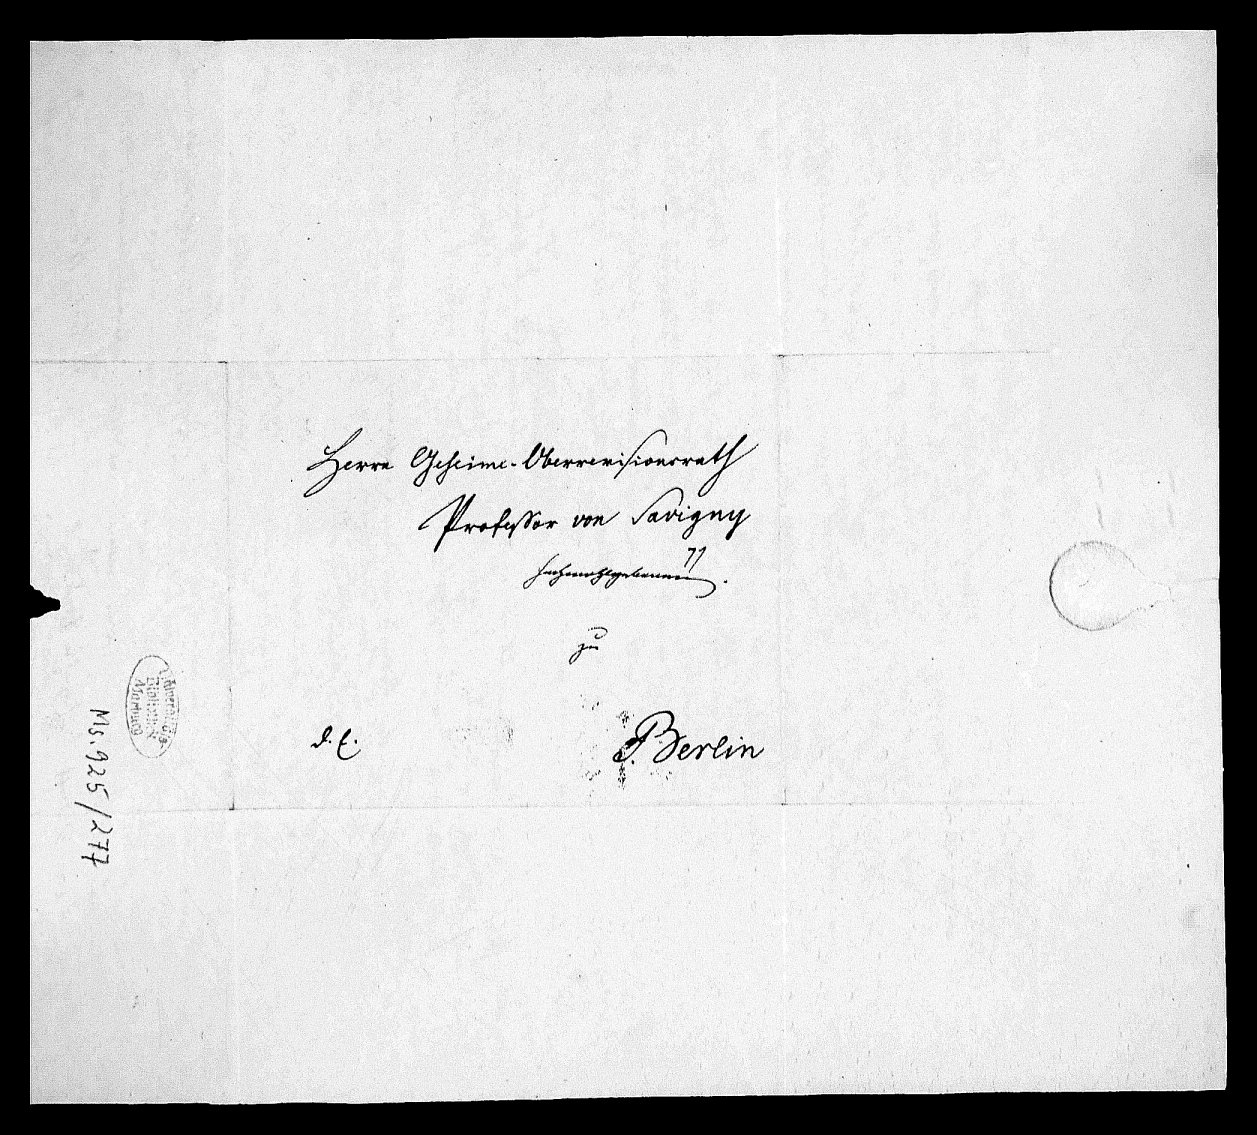 Herrn Geheime-Oberrevisionsrath
Professor von Savigny
Hochwohlgeboren
zu
d. E. Berlin
Universitäts-
Bibliothek
Marburg
Ms. 925/277